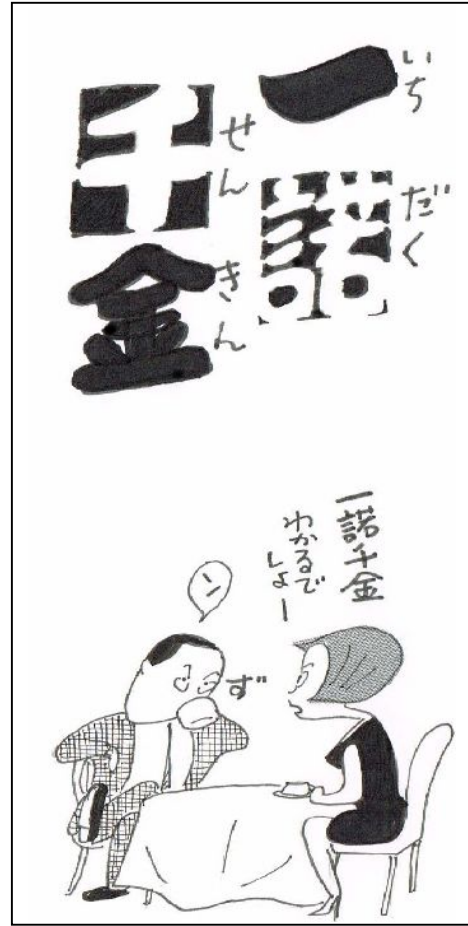 一諾
いちだく
千金
せんきん
一諾千金
わかるで
しょー
ン
ず